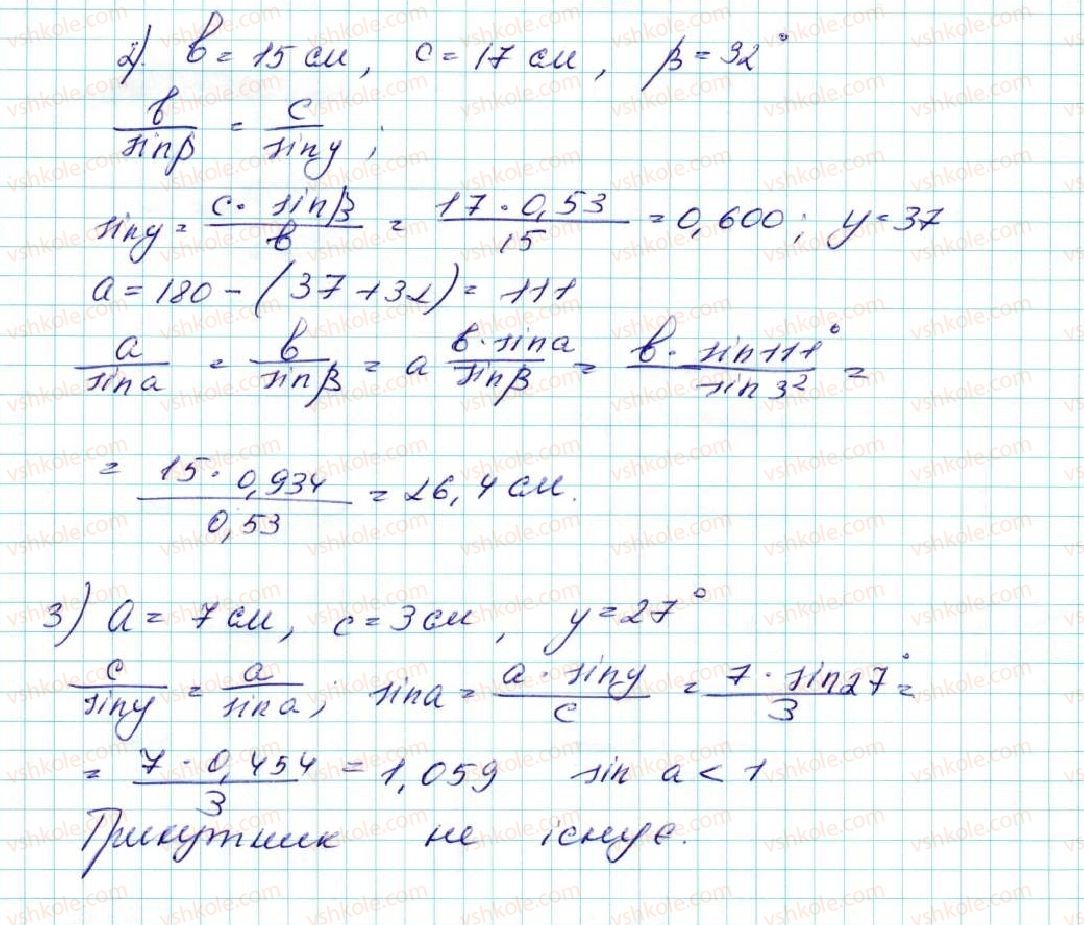 2). b = 15 см, c = 17 см, β = 32°
b/sinβ = c/sinγ;
sinγ = c · sinβ/b = 17 · 0,53/15 = 0,600; γ = 37
a = 180 - (37 + 32) = 111
a/sin a = b/sinβ = a b · sin a/sinβ = b · sin 111°/sin 32 =
= 15 · 0,934/0,53 = 26,4 см.
3) a = 7 см, c = 3 см, γ = 27°
c/sinγ = a/sin a; sin a = a · sinγ/c = 7 · sin 27°/3 =
= 7 · 0,454/3 = 1,059 sin a < 1
Трикутник не існує.